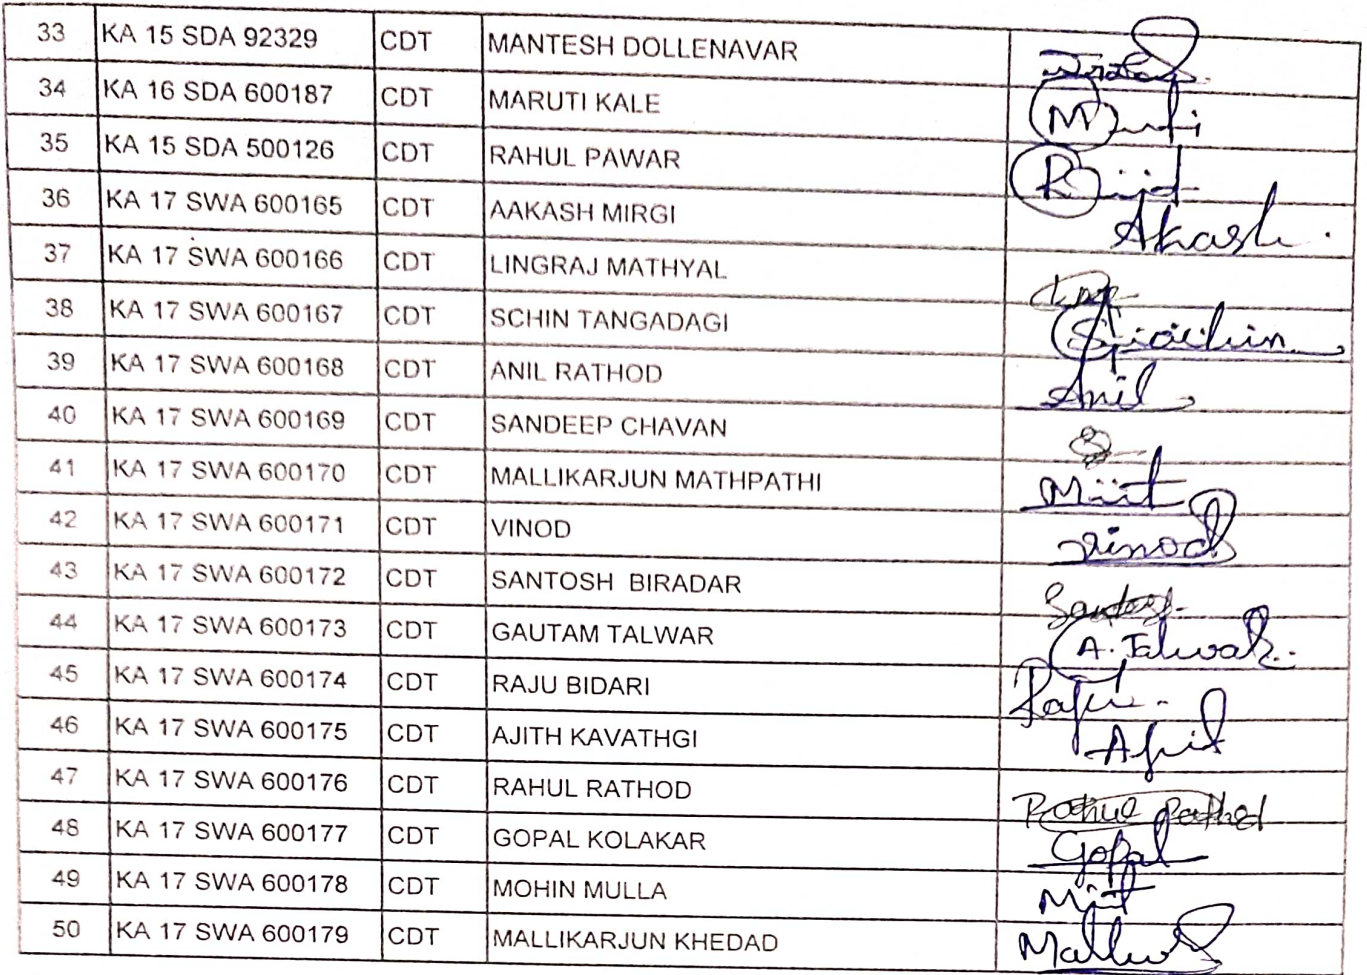 33 KA 15 SDA 92329 CDT MANTESH DOLLENAVAR
34 KA 16 SDA 600187 CDT MARUTI KALE
35 KA 15 SDA 500126 CDT RAHUL PAWAR
36 KA 17 SWA 600165 CDT AAKASH MIRGI Akash.
37 KA 17 SWA 600166 CDT LINGRAJ MATHYAL
38 KA 17 SWA 600167 CDT SCHIN TANGADAGI
39 KA 17 SWA 600168 CDT ANIL RATHOD Anil
40 KA 17 SWA 600169 CDT SANDEEP CHAVAN
41 KA 17 SWA 600170 CDT MALLIKARJUN MATHPATHI
42 KA 17 SWA 600171 CDT VINOD vinod
43 KA 17 SWA 600172 CDT SANTOSH BIRADAR
44 KA 17 SWA 600173 CDT GAUTAM TALWAR A. Talwar.
45 KA 17 SWA 600174 CDT RAJU BIDARI Raju.
46 KA 17 SWA 600175 CDT AJITH KAVATHGI Ajit
47 KA 17 SWA 600176 CDT RAHUL RATHOD Rahul Rathod
48 KA 17 SWA 600177 CDT GOPAL KOLAKAR Gopal
49 KA 17 SWA 600178 CDT MOHIN MULLA
50 KA 17 SWA 600179 CDT MALLIKARJUN KHEDAD